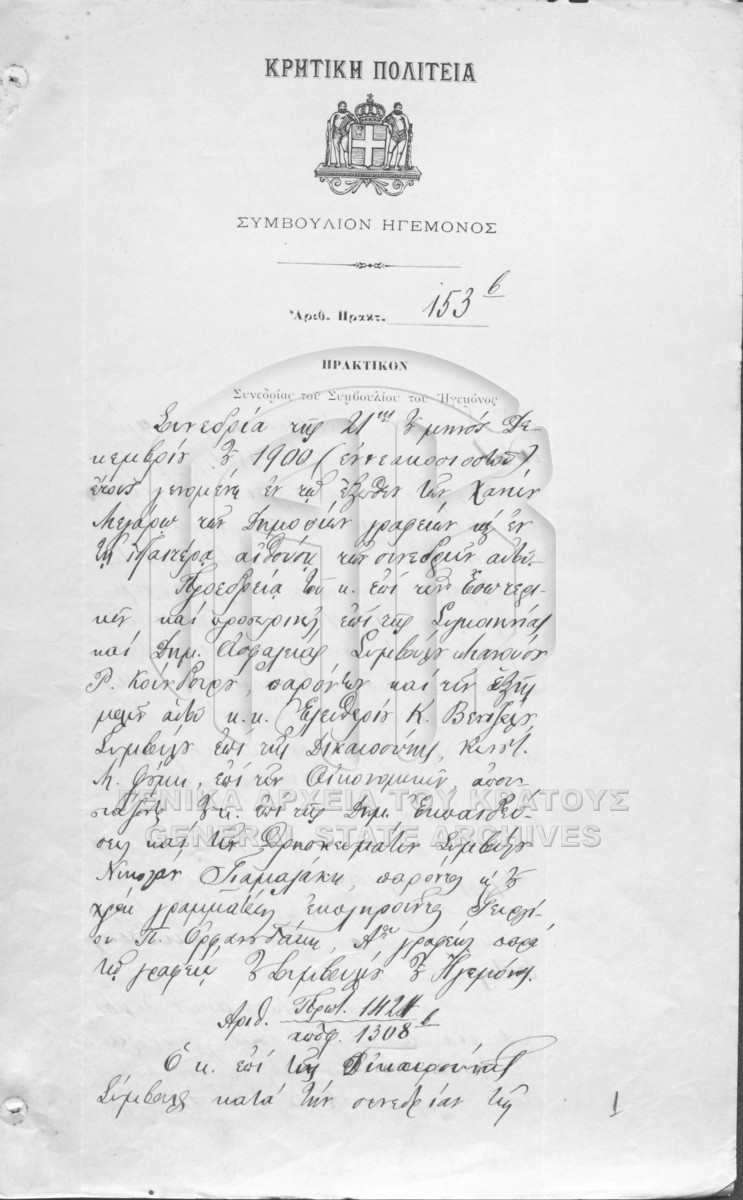 ΚΡΗΤΙΚΗ ΠΟΛΙΤΕΙΑ
ΣΥΜΒΟΥΛΙΟΝ ΗΓΕΜΟΝΟΣ
Ἀριθ. Πρακτ. 153 β
ΠΡΑΚΤΙΚΟΝ
Συνεδρίας τοῦ Συμβουλίου τοῦ Ἡγεμόνος
Συνεδρία τῆς 21ης τοῦ μηνός Δε-
κεμβρίου τοῦ 1900 (ἐννεακοσιοστοῦ)
ἔτους γενομένη ἐν τῷ ἔξωθεν τῶν Χανίων
Μεγάρῳ τῶν Δημοσίων γραφείων καὶ ἐν
τῇ ἰδιαιτέρᾳ αἰθούσῃ τῶν συνεδριῶν αὐτοῦ.
Προεδρείᾳ τοῦ κ. ἐπί τῶν Ἐσωτερι-
κῶν καί προσωρινῶς ἐπί τῆς Συγκοινωνίας
καί Δημ. Ἀσφαλείας Συμβούλου Μανούσου
Ρ. Κούνδουρου, παρόντων καί τῶν ἑξῆς
μελῶν αὐτοῦ κ.κ. Ἐλευθερίου Κ. Βενιζέλου,
Συμβούλου ἐπί τῆς Δικαιοσύνης, Κωνστ.
Μ. Φούμη, ἐπί τῶν Οἰκονομικῶν, ἀπου-
σιάζοντος τοῦ κ. ἐπί τῆς Δημ. Ἐκπαιδεύ-
σεως καί τῶν Θρησκευμάτων Συμβούλου
Νικολάου Γιαμαλάκη, παρόντος καὶ τοῦ
χρέη γραμματέως ἐκπληροῦντος Γεωργί-
ου Π. Ὀρφανουδάκη, Αου γραφέως παρά
τῷ γραφείῳ τοῦ Συμβουλίου τοῦ Ἡγεμόνος.
Ἀριθ. Πρωτ. 1421
ἀποφ. 1308 β
Ὁ κ. ἐπί τῆς Δικαιοσύνης
Σύμβουλος κατά τήν συνεδρίαν τῆς
1
ΓΕΝΙΚΑ ΑΡΧΕΙΑ ΤΟΥ ΚΡΑΤΟΥΣ
GENERAL STATE ARCHIVES